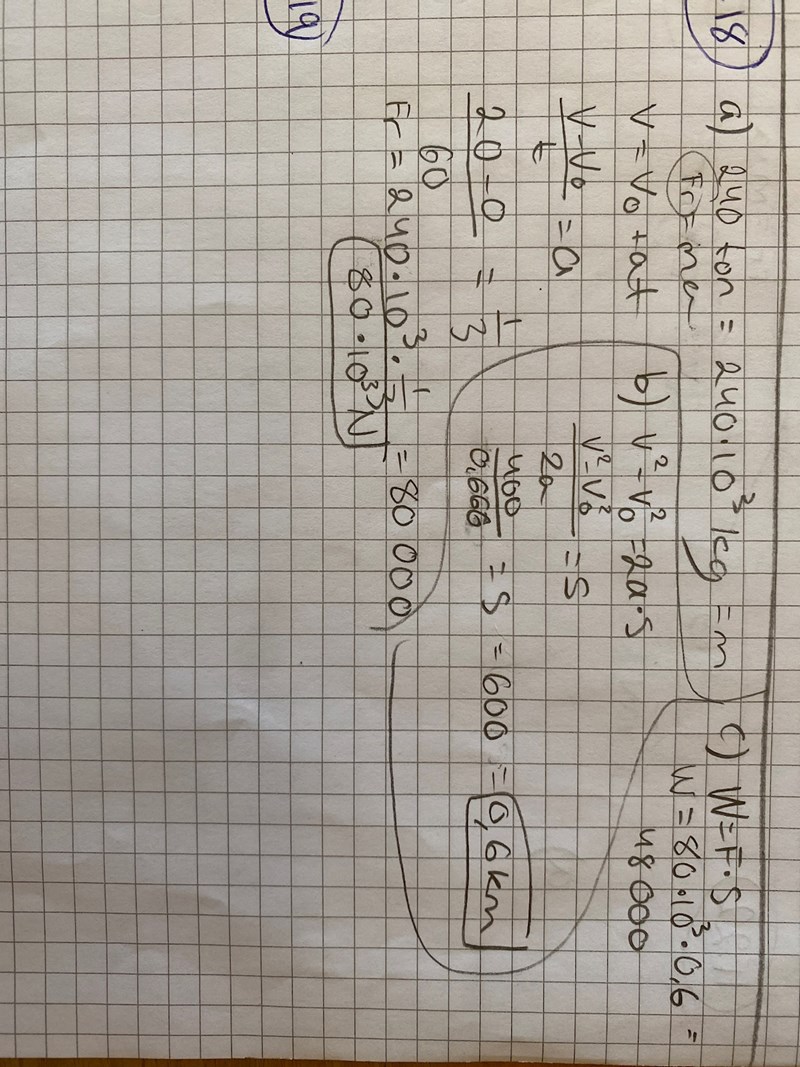 18
a) 240 ton = 240·10³ kg = m
Fr = ma
v = v₀ + at
v-v₀/t = a
20-0/60 = 1/3
Fr = 240·10³·1/3 = 80 000
80·10³ N
b) v²-v₀² = 2a·s
v²-v₀²/2a = s
400/0,666 = s = 600 = 0,6 km
c) W = F·s
W = 80·10³·0,6 =
48 000
19